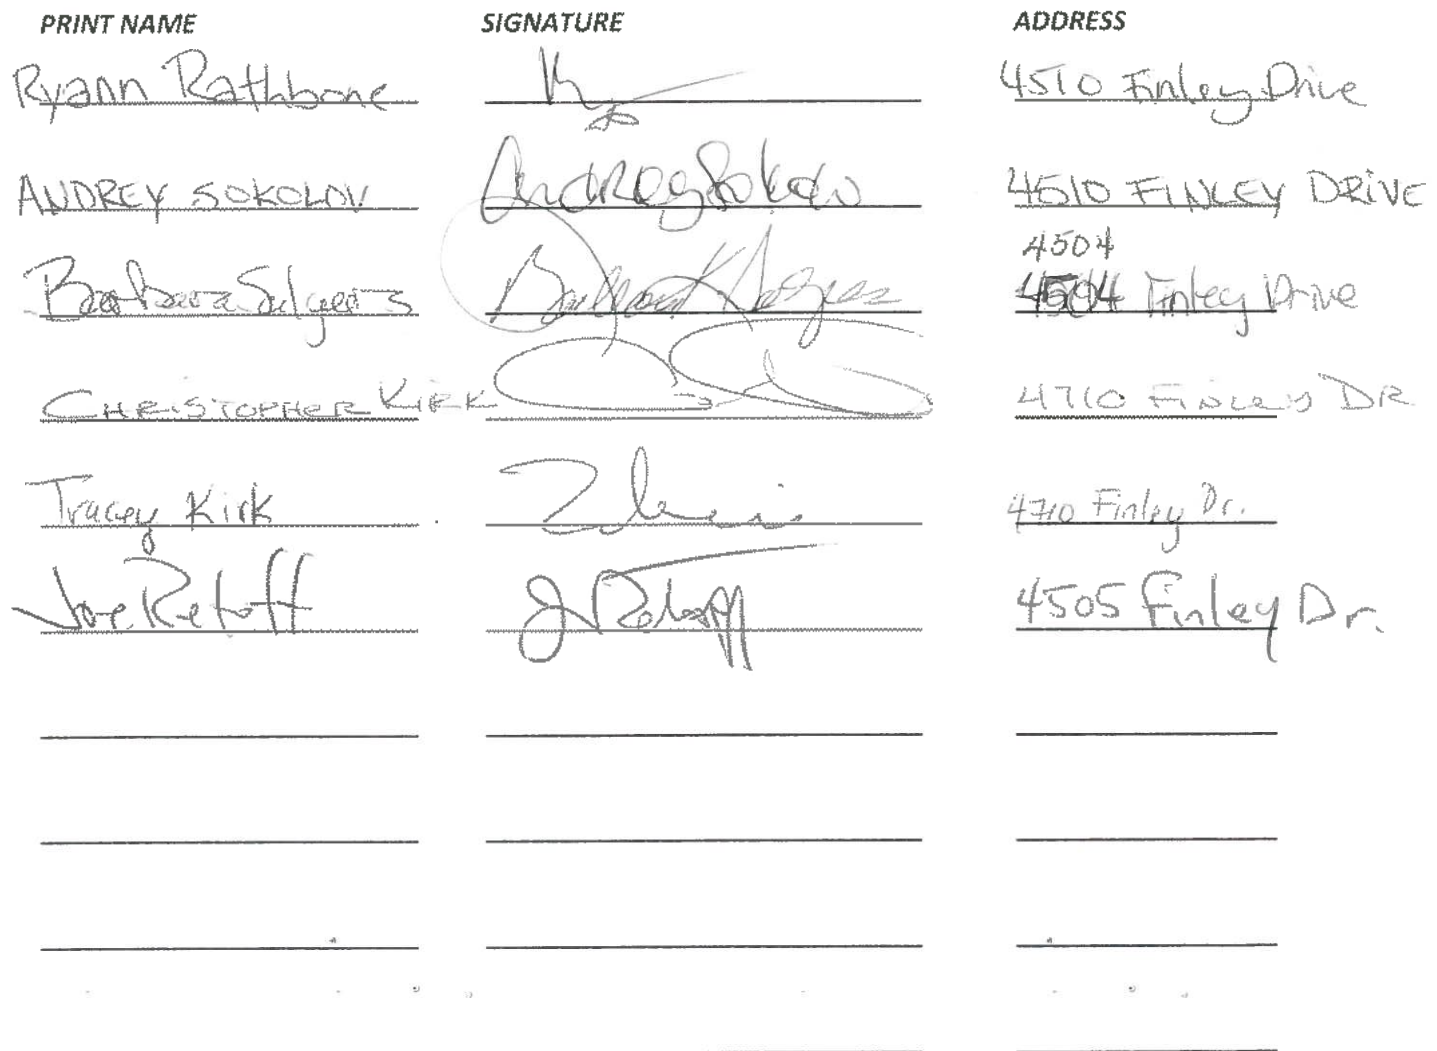 PRINT NAME SIGNATURE ADDRESS
Ryann Rathbone 4510 Finley Drive
ANDREY SOKOLOV Andrey Sokolov 4510 FINLEY DRIVE
4504
Barbara Salyers 4504 Finley Drive
CHRISTOPHER KIRK 4710 FINLEY DR
Tracey Kirk 4710 Finley Dr.
Joe Retoff 4505 Finley Dr.